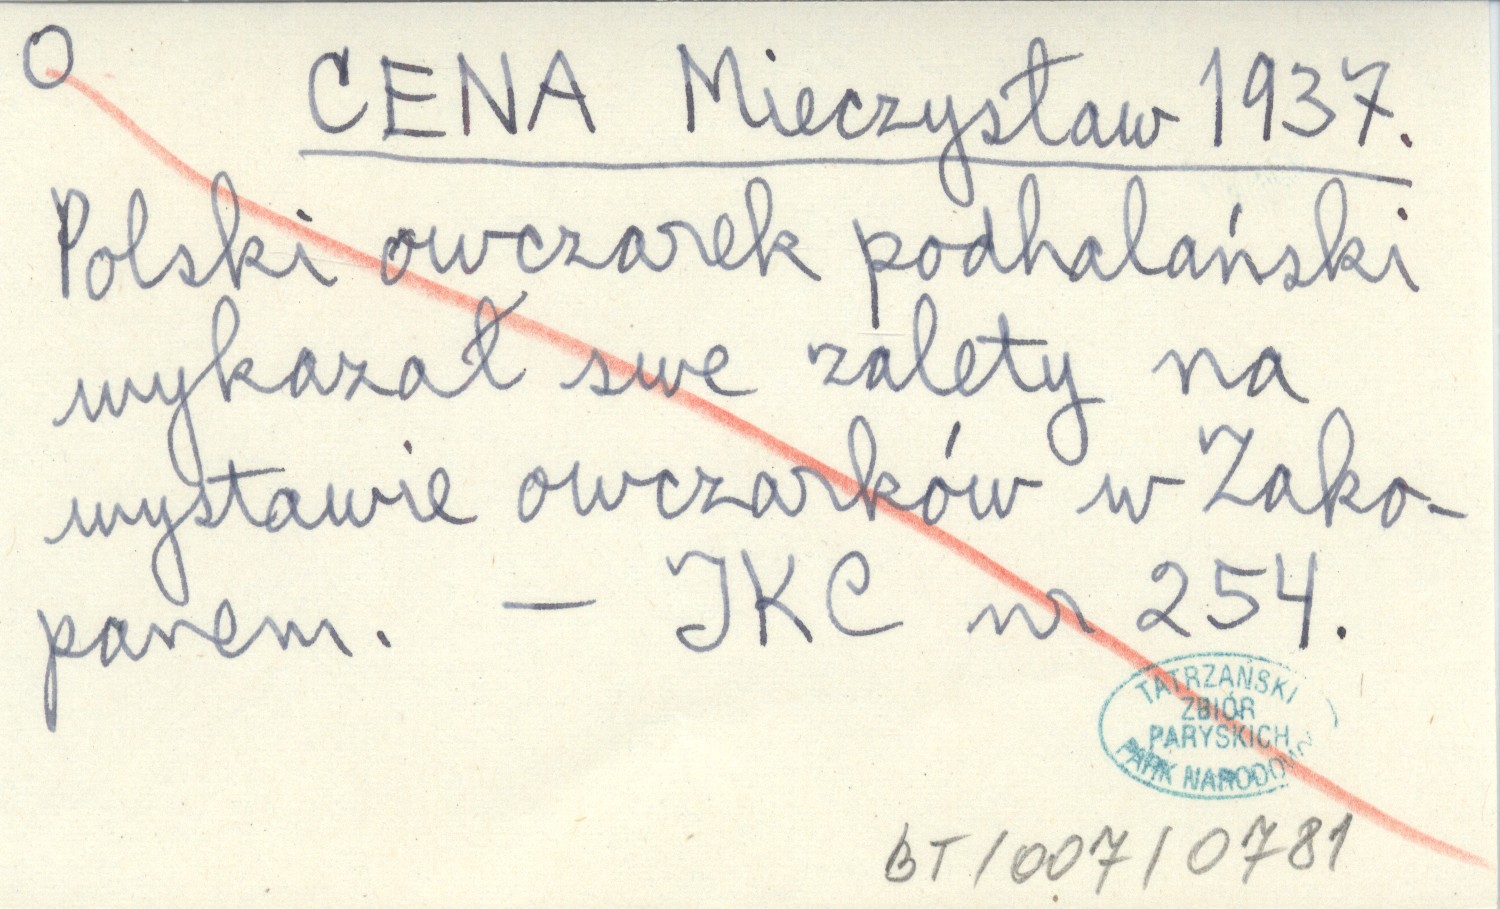 O
CENA Mieczysław 1937.
Polski owczarek podhalański
wykazał swe zalety na
wystawie owczarków w Zako-
panem. — IKC nr 254.
TATRZAŃSKI
ZBIÓR
PARYSKICH
PARK NARODOWY
BT/007/0781